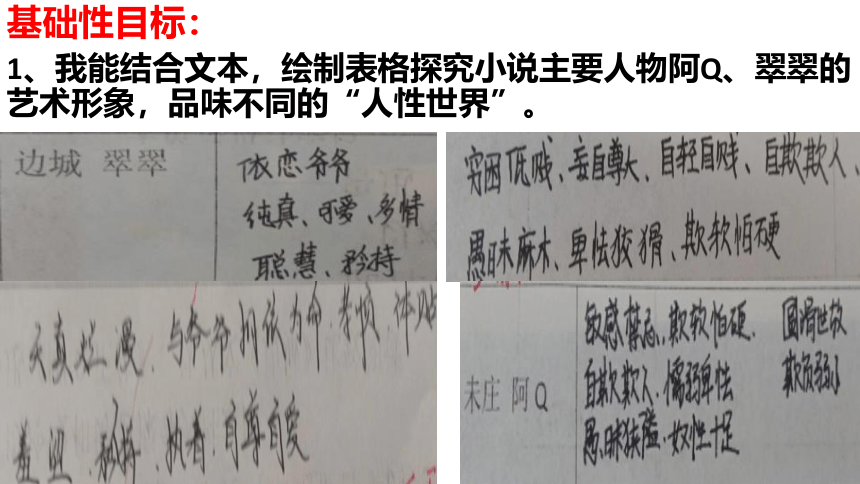 基础性目标：
1、我能结合文本，绘制表格探究小说主要人物阿Q、翠翠的
艺术形象，品味不同的“人性世界”。
边城 翠翠
依恋爷爷
纯真、可爱、多情
聪慧、矜持
穷困低贱、妄自尊大、自轻自贱、自欺欺人、
愚昧麻木、卑怯狡猾、欺软怕硬
天真烂漫、与爷爷相依为命、孝顺、体贴
羞涩、矜持、执着、自尊自爱
未庄 阿Q
敏感禁忌、欺软怕硬、
自欺欺人、懦弱卑怯
愚昧狭隘、奴性十足
圆滑世故
欺负弱小